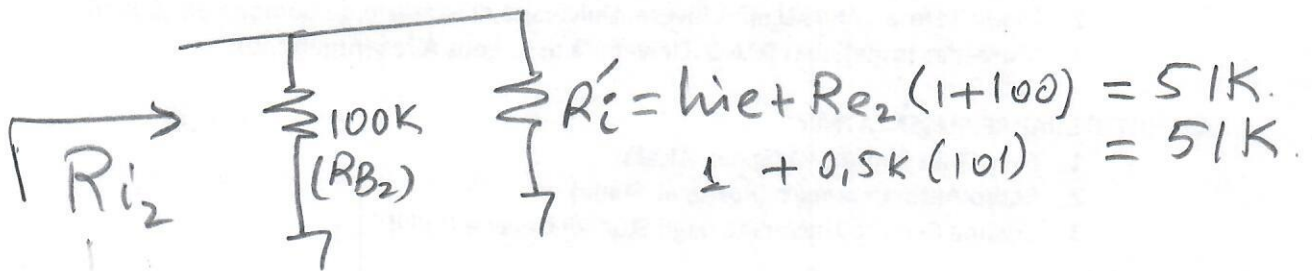 100K
(RB₂)
Ri₂
Ri′ = hie + Re₂ (1+100) = 51K.
1 + 0,5K (101) = 51K.